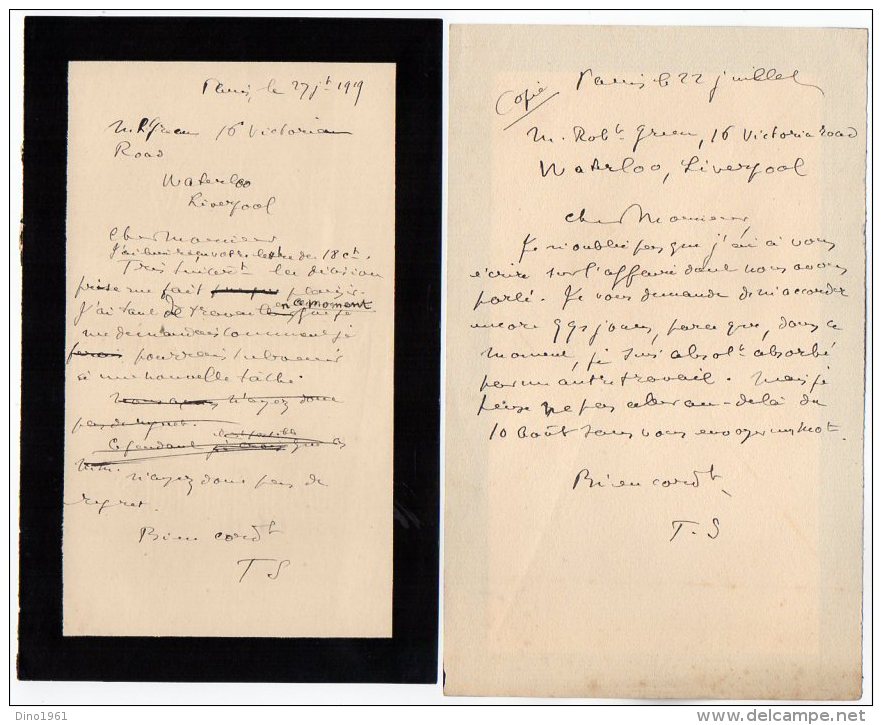 Paris, le 27 jt 1919
M. Rt Green 16 Victorian
Road
Waterloo
Liverpool
Cher Monsieur
J'ai bien reçu votre lettre du 18 ct.
Très sincert la décision
prise me fait plaisir.
J'ai tant de travail en ce moment que je
me demandais comment je
ferais pourrais subvenir
à une nouvelle tâche.
Nous avons N'ayez donc
pas de regret.
Cependant c'est possible je crois que les
N'ayez donc pas de
regret.
Bien cordt
T S
Copie
Paris le 22 juillet
M. Robt Green, 16 Victoria road
Waterloo, Liverpool
Cher Monsieur
Je n'oublie pas que j'ai à vous
écrire sur l'affaire dont nous avons
parlé. Je vous demande de m'accorder
encore qqs jours, parce que, dans ce
moment, je suis absolt absorbé
par un autre travail. Mais je
pense ne pas aller au-delà du
10 Août sans vous envoyer un mot.
Bien cordt
T. S
Dino1961
www.delcampe.net